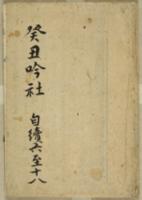 癸丑吟社
自續六至十八